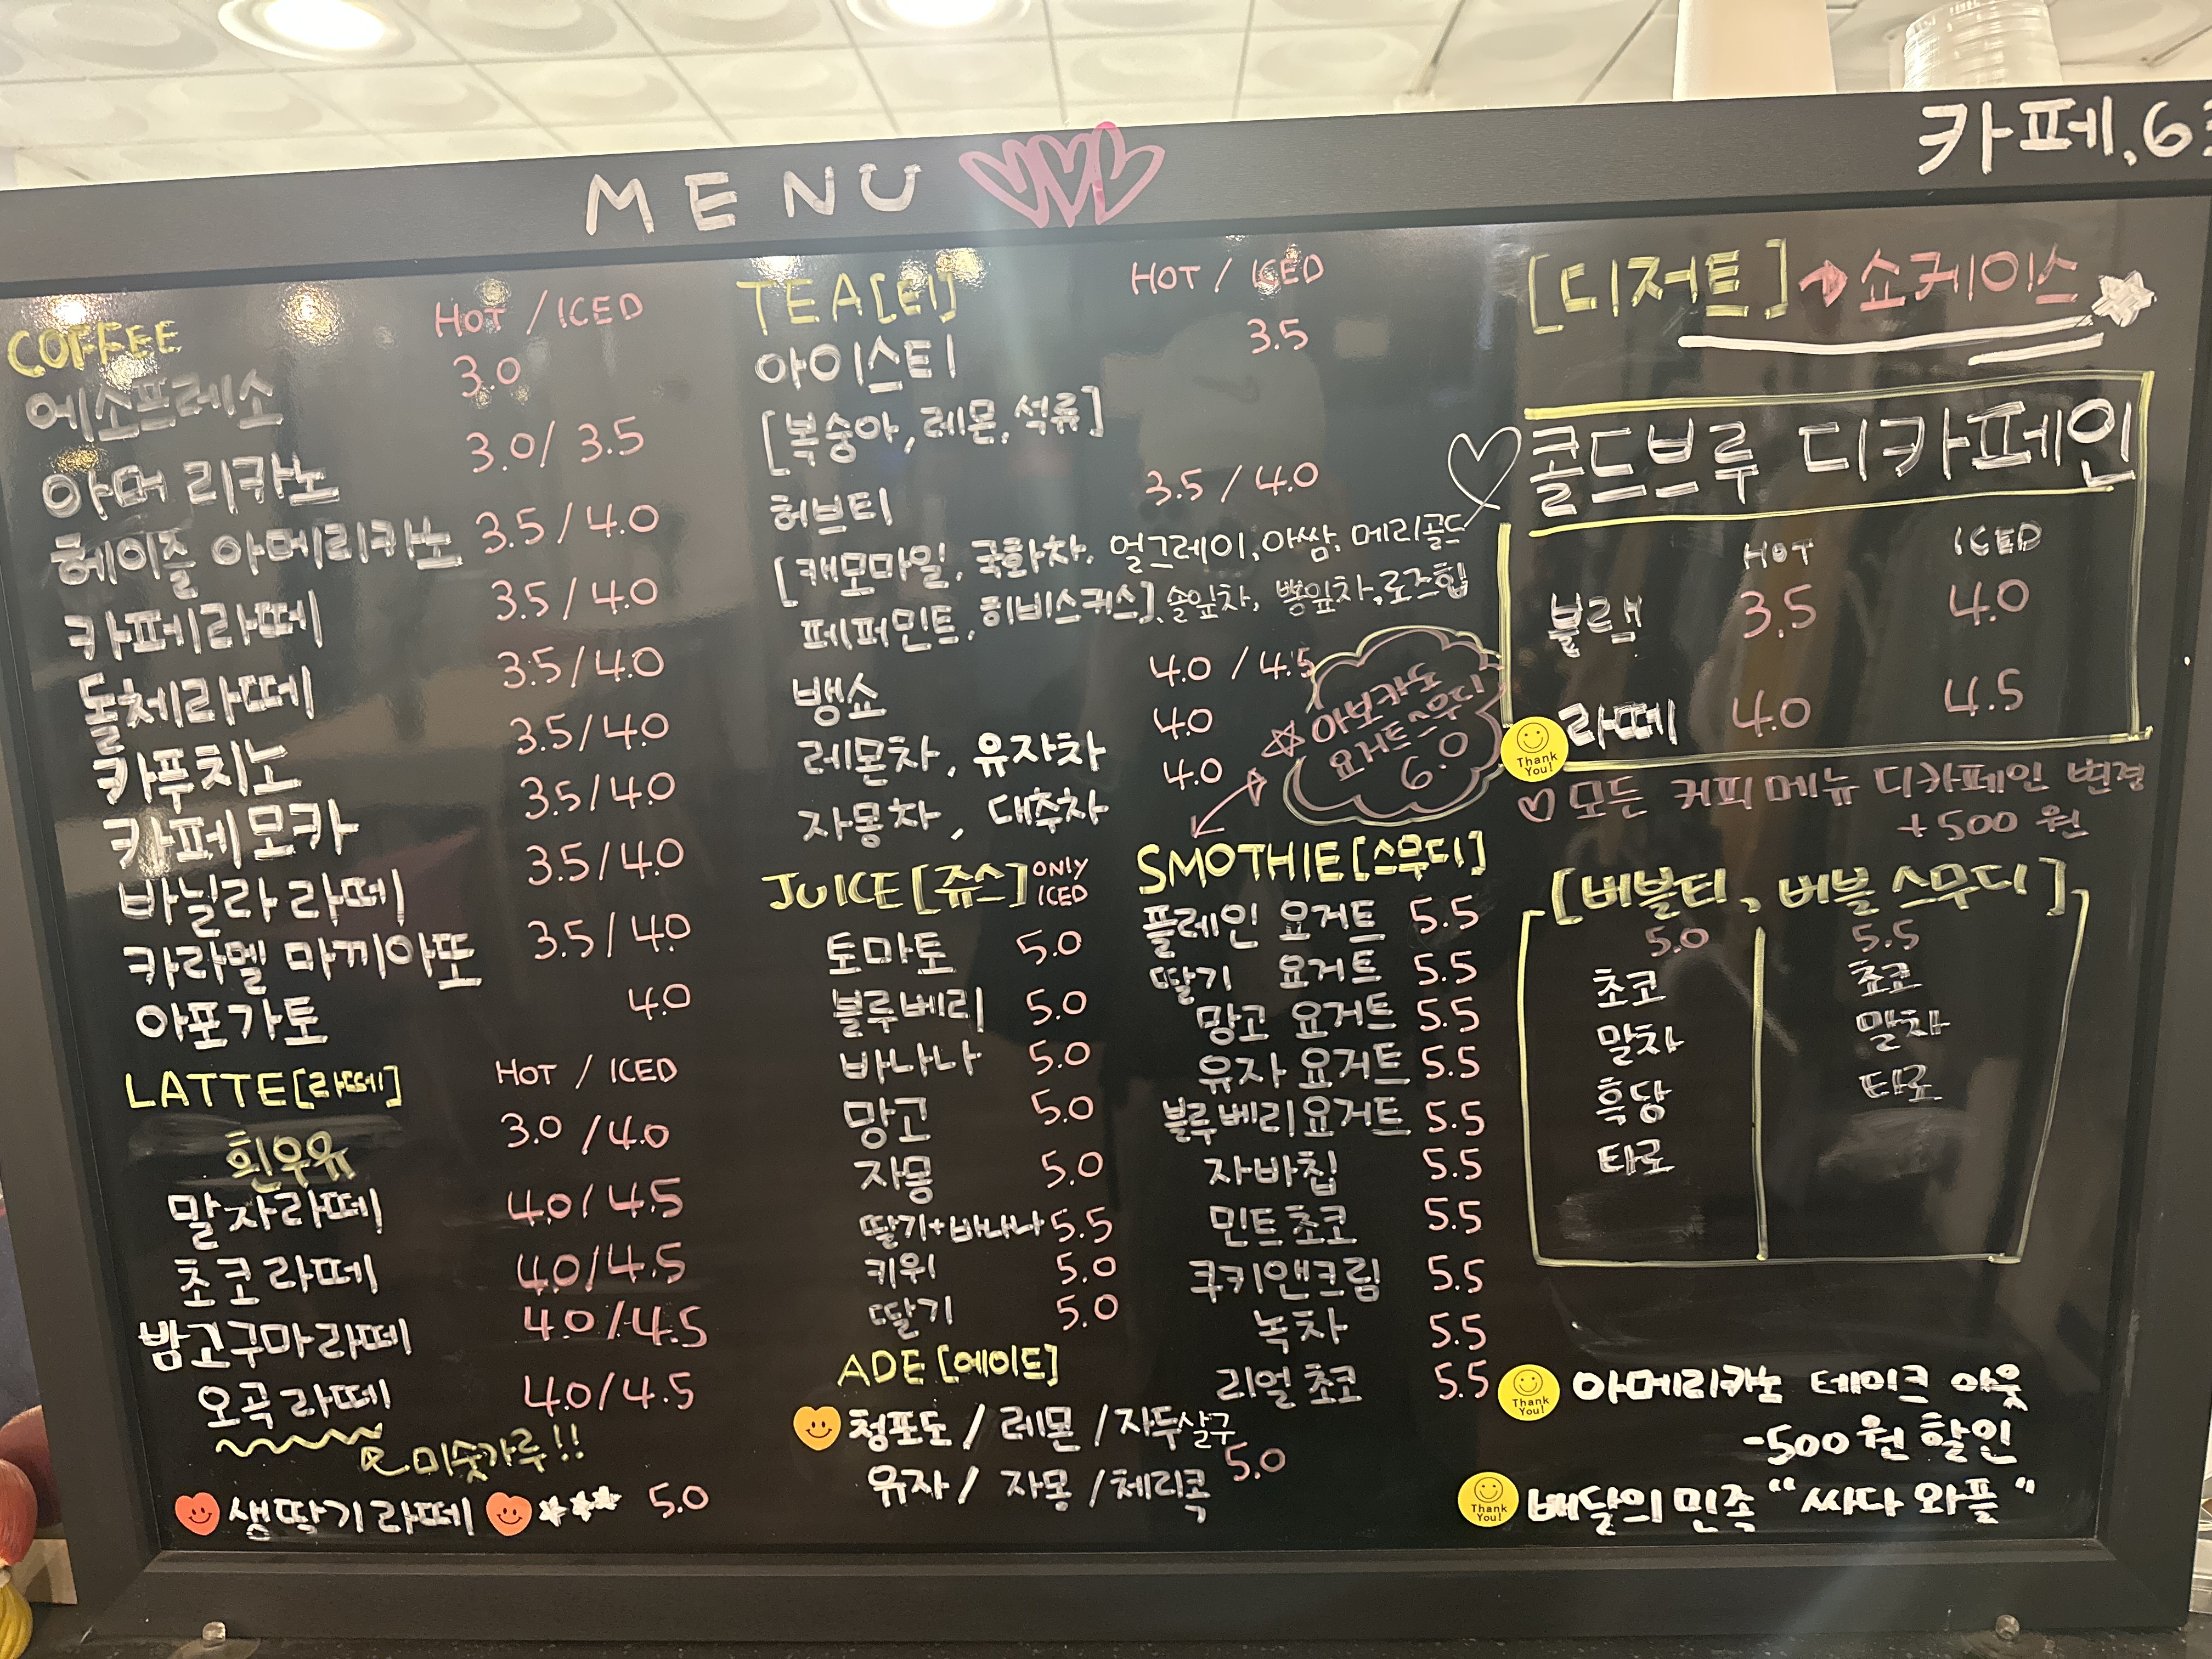 카페.6
MENU
COFFEE HOT / ICED
에소프레소 3.0
아머리카노 3.0/ 3.5
헤이즐 아메리카노 3.5/4.0
카페라떼 3.5/4.0
돌체라떼 3.5/4.0
카푸치노 3.5/4.0
카페모카 3.5/4.0
바닐라 라떼 3.5/4.0
카라멜 마끼아또 3.5/4.0
아포가토 4.0
LATTE[라떼] HOT / ICED
흰우유 3.0 /4.0
말차라떼 4.0/4.5
초코라떼 4.0/4.5
밤고구마라떼 4.0/4.5
오곡라떼 4.0/4.5
미숫가루!!
생딸기라떼 5.0
TEA[티] HOT / ICED
아이스티 3.5
[복숭아, 레몬, 석류]
허브티 3.5 / 4.0
[캐모마일, 국화차, 얼그레이, 아쌈, 메리골드
페퍼민트, 히비스커스], 솔잎차, 뽕잎차, 로즈힙
뱅쇼 4.0 / 4.5
레몬차, 유자차 4.0
자몽차, 대추차 4.0
아보카도
요거트스무디
6.0
JUICE[쥬스] ONLY ICED
토마토 5.0
블루베리 5.0
바나나 5.0
망고 5.0
자몽 5.0
딸기+바나나 5.5
키위 5.0
딸기 5.0
ADE[에이드]
청포도 / 레몬 / 자두살구
유자 / 자몽 / 체리콕 5.0
SMOTHIE[스무디]
플레인 요거트 5.5
딸기 요거트 5.5
망고 요거트 5.5
유자 요거트 5.5
블루베리요거트 5.5
자바칩 5.5
민트초코 5.5
쿠키앤크림 5.5
녹차 5.5
리얼 초코 5.5
[디저트]→쇼케이스
콜드브루 디카페인
HOT ICED
블랙 3.5 4.0
라떼 4.0 4.5
Thank You!
모든 커피메뉴 디카페인 변경
+500원
[버블티, 버블 스무디]
5.0 5.5
초코 초코
말차 말차
흑당 타로
타로
Thank You!
아메리카노 테이크 아웃
-500원 할인
Thank You!
배달의민족 "싸다 와플"